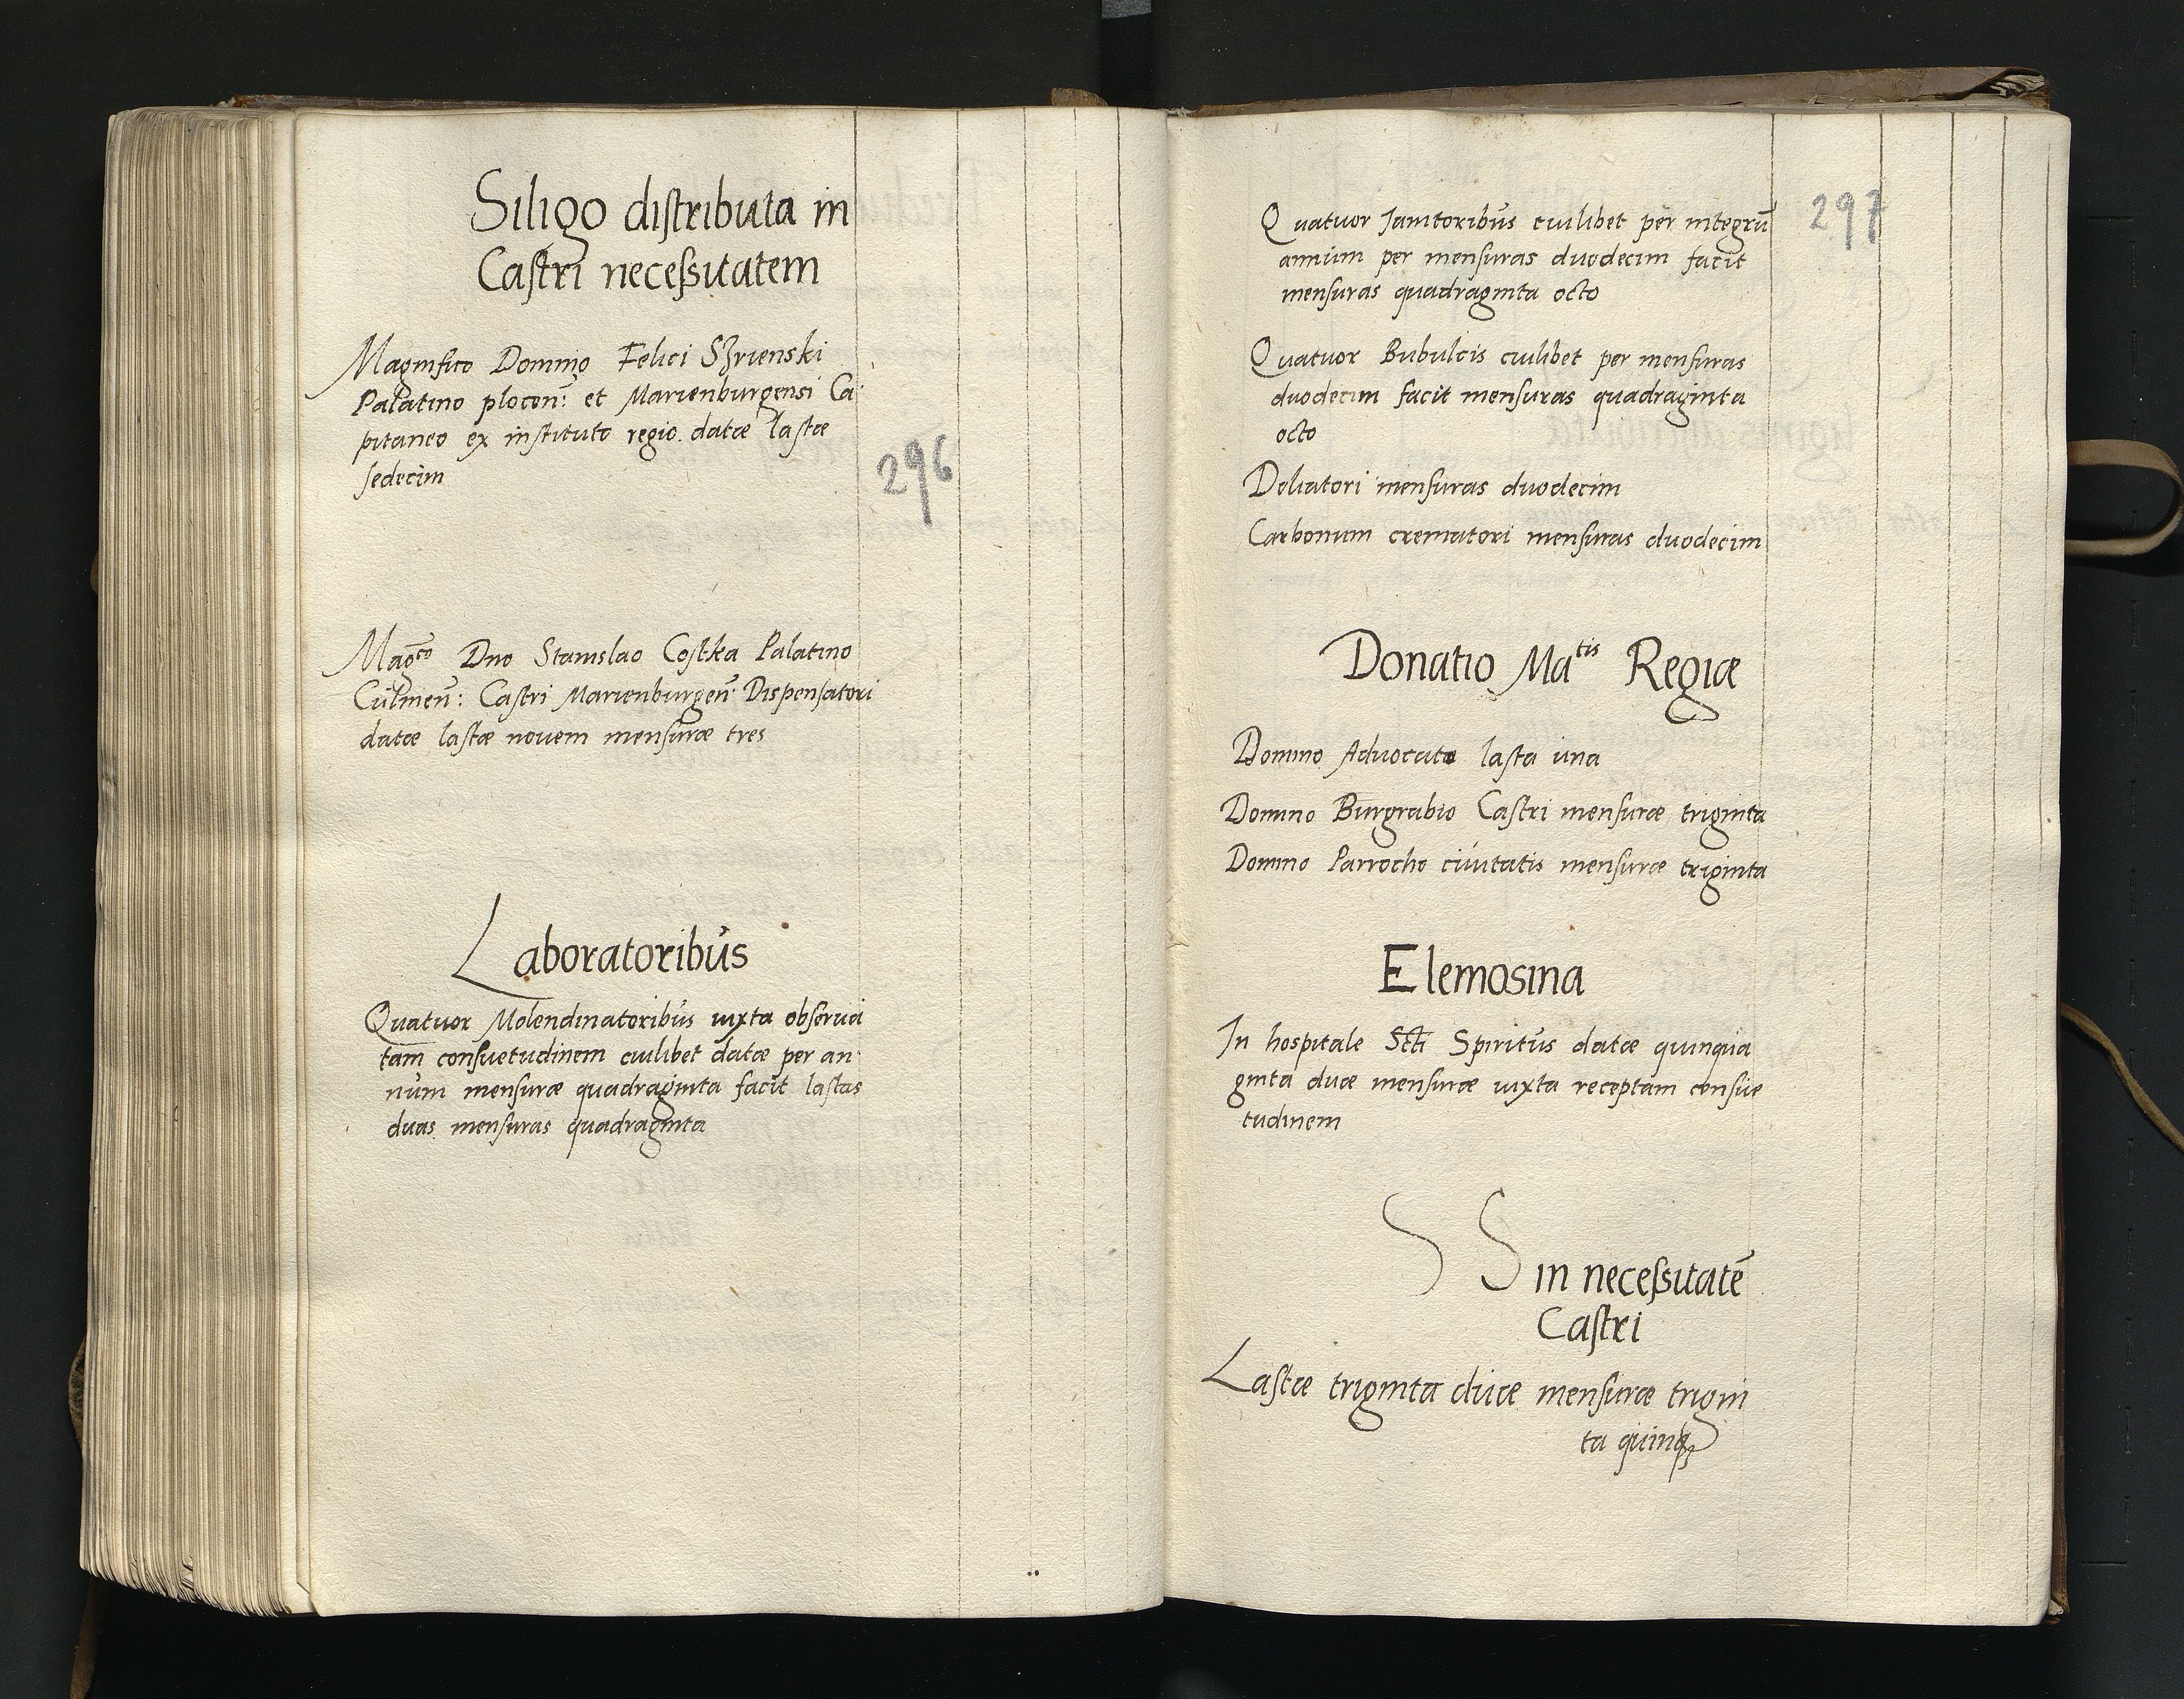 Siligo distributa in
Castri necessitatem
Magnifico Domino Felici Szrienski
Palatino plocen̄: et Marienburgensi Ca
pitaneo ex instituto regio datæ lastæ
sedecim
296
Mag^co Dno Stanislao Costka Palatino
Culmen̄: Castri Marienburgen̄ Dispensatori
datæ lastæ novem mensuræ tres
Laboratoribus
Quatuor Molendinatoribus iuxta observa
tam consuetudinem cuilibet datæ per an
num mensuræ quadraginta facit lastas
duas mensuras quadraginta
297
Quatuor Ianitoribus cuilibet per integrū
annum per mensuras duodecim facit
mensuras quadraginta octo
Quatuor Bubulcis cuilibet per mensuras
duodecim facit mensuras quadraginta
octo
Doliatori mensuras duodecim
Carbonum crematori mensuras duodecim
Donatio Ma^tis Regiæ
Domino Advocato lasta una
Domino Burgrabio Castri mensuræ triginta
Domino Parrocho civitatis mensuræ triginta
Elemosina
In hospitale Scti Spiritus datæ quinqua
ginta duæ mensuræ iuxta receptam consue
tudinem
S S in necessitatē
Castri
Lastæ triginta duæ mensuræ trigin
ta quinq₃